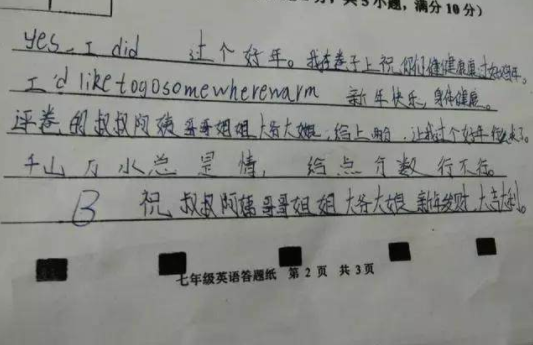 共5小题，满分10分）
yes I did 过个好年。我在卷子上祝你们健健康康过好年。
I'd like to go somewhere warm 新年快乐，身体健康。
评卷的叔叔阿姨哥哥姐姐大爷大娘，给上两分，让我过个好年
千山万水总是情，给点分数行不行。
B 祝叔叔阿姨哥哥姐姐大爷大娘新年发财大吉大利。
七年级英语答题纸 第2页 共3页